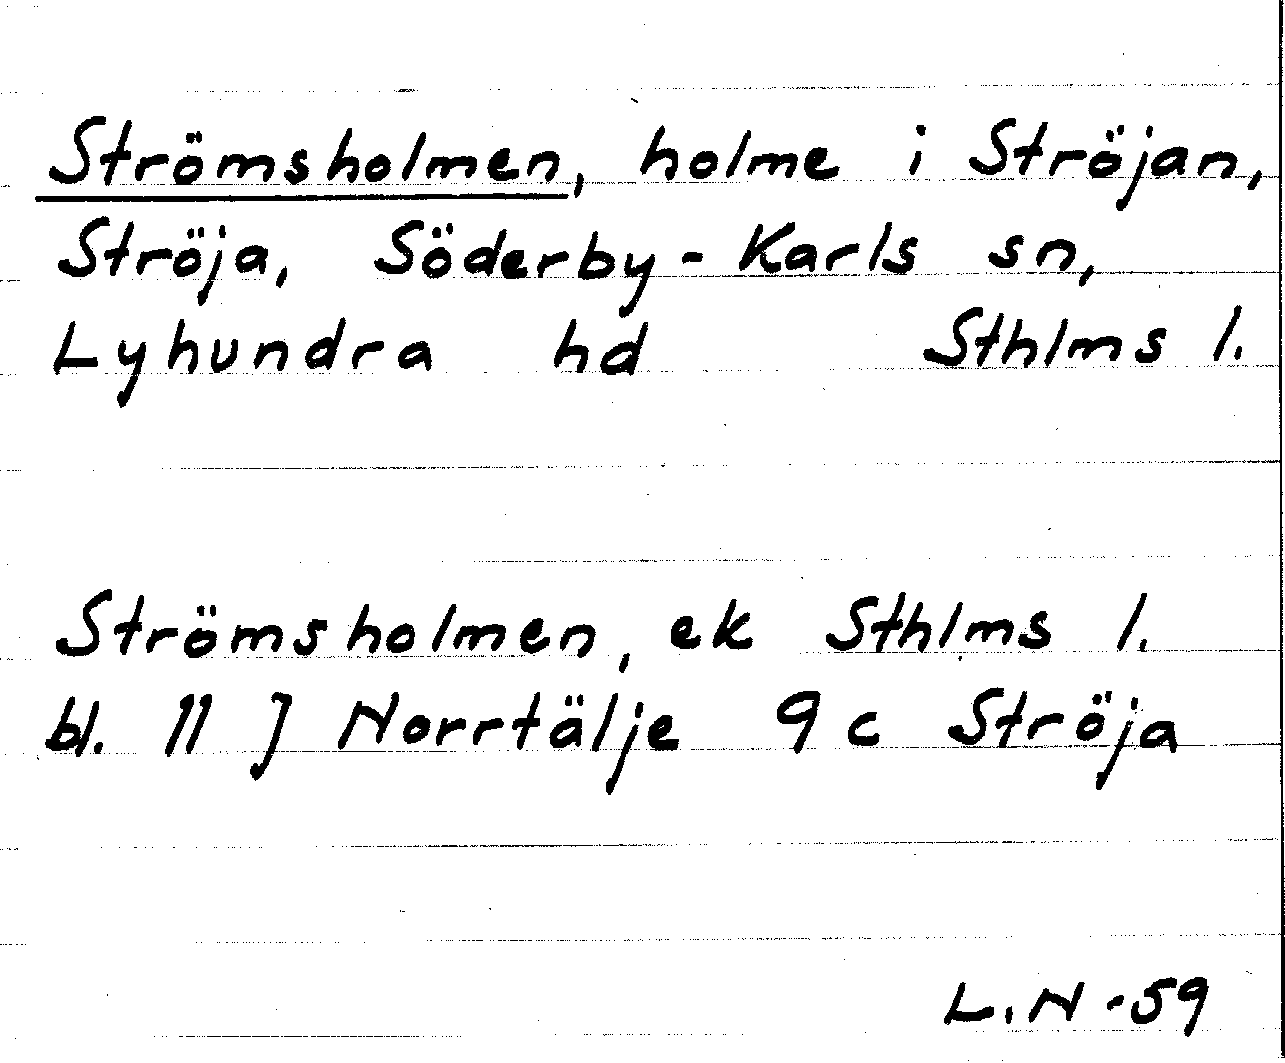 Strömsholmen, holme i Ströjan,
Ströja, Söderby-Karls sn,
Lyhundra hd Sthlms l.
Strömsholmen, ek Sthlms l.
bl. 11 J Norrtälje 9 c Ströja
L.N -59